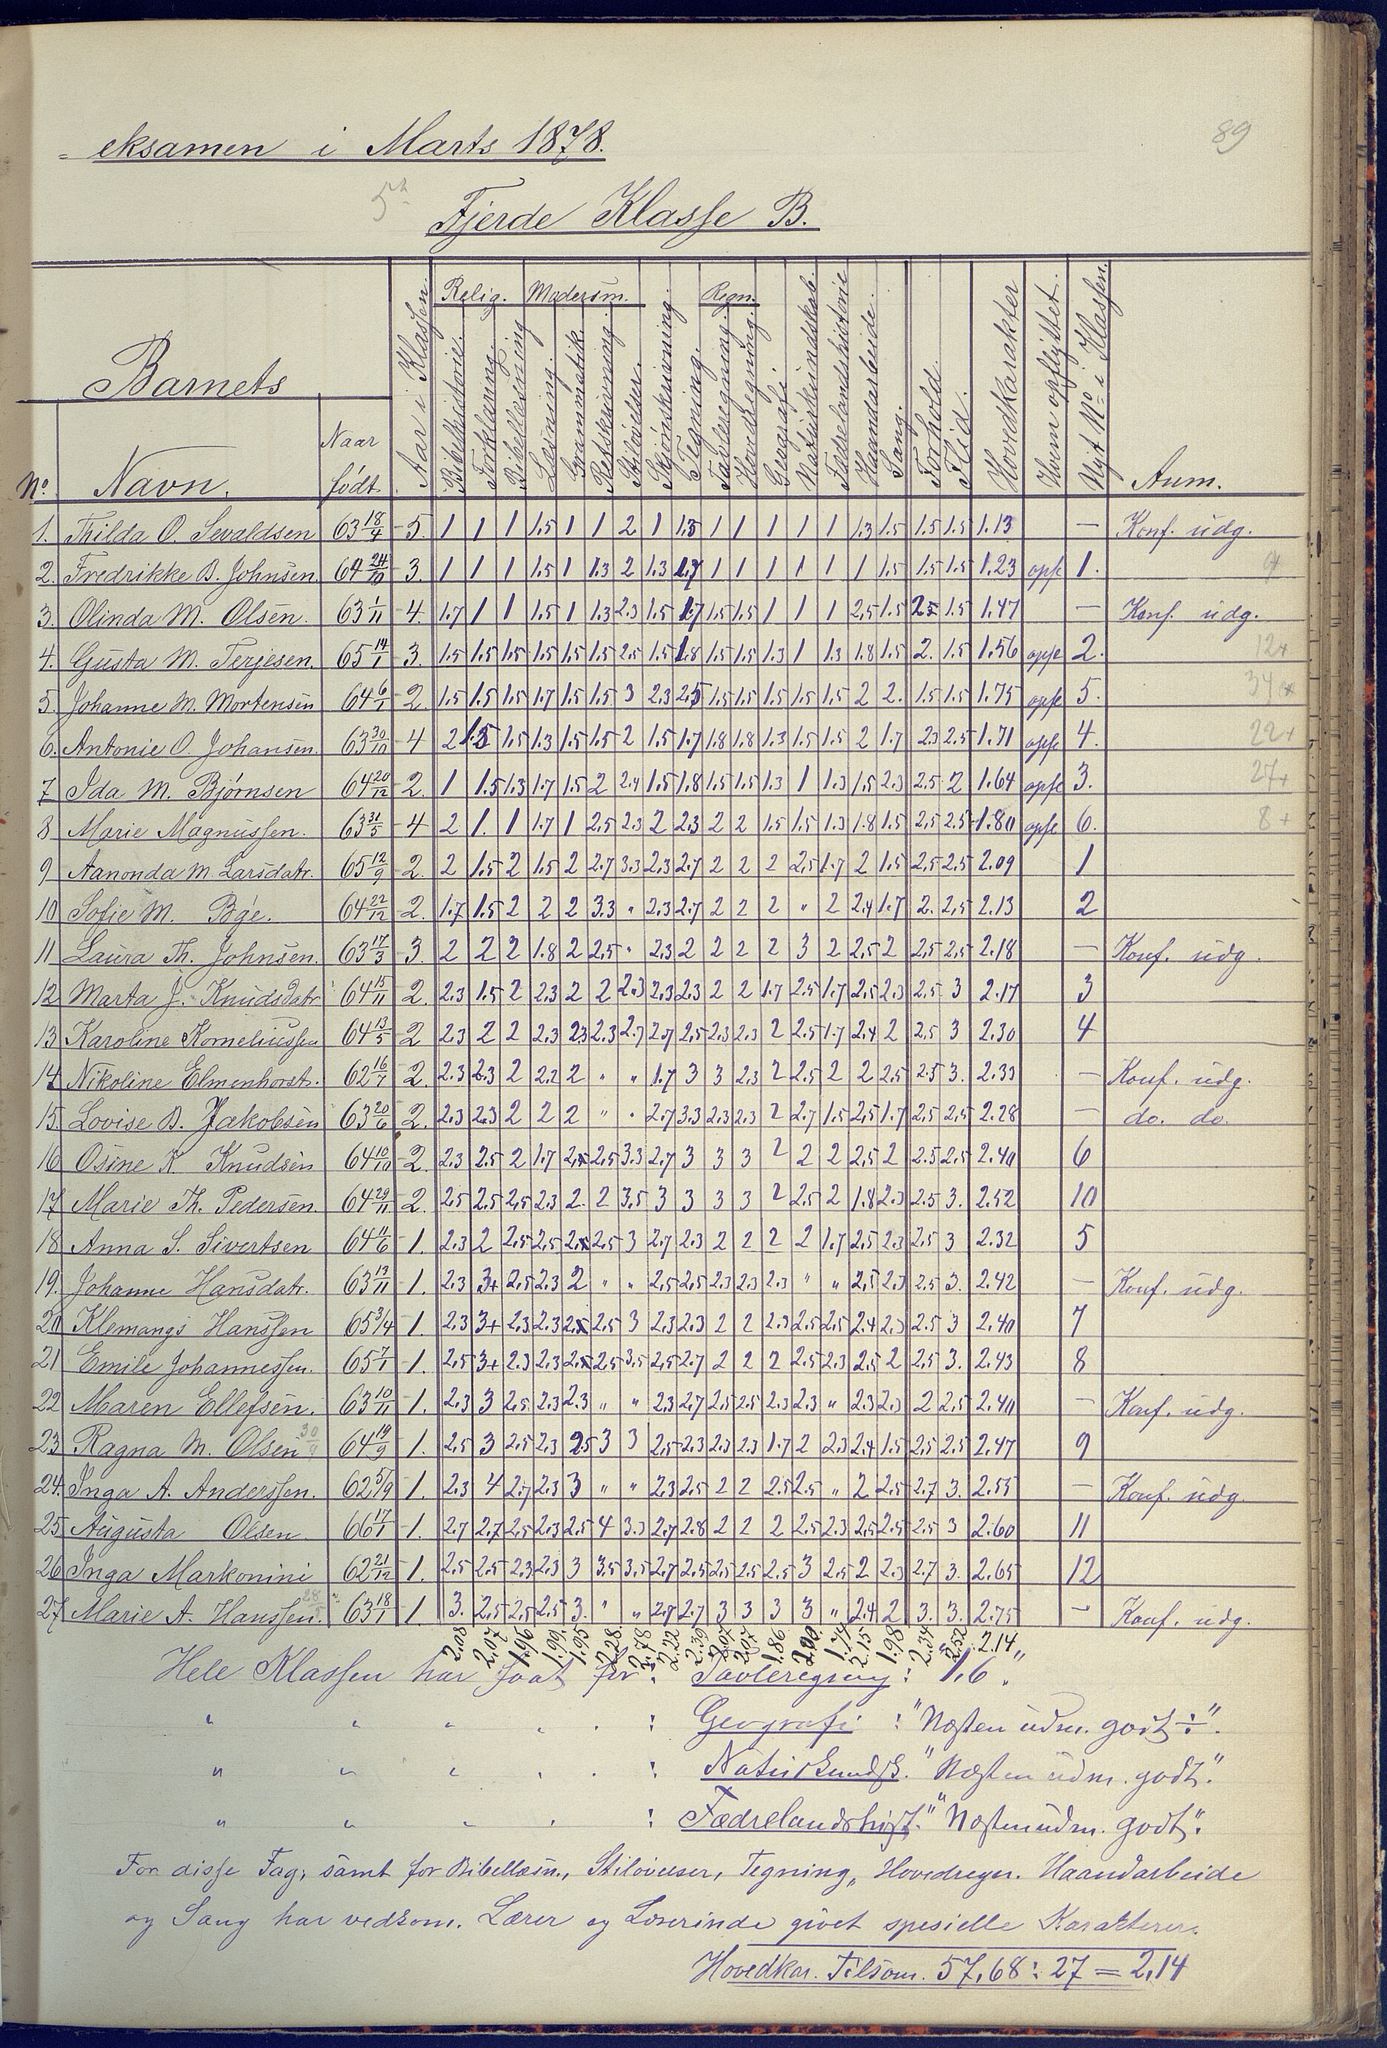 89
eksamen i Marts 1878.
5te
Fjerde Klasse B.
Barnets
No. Navn. Naar født. Aar i Klassen. Relig. Bibelhistorie. Forklaring. Bibellæsning Modersm. Læsning. Grammatik. Retskrivning. Stiløvelser. Skjønskrivning. Tegning. Regn. Tavleregning. Hovedregning. Geografi Naturkundskab. Fædrelandshistorie Haandarbeide. Sang. Forhold. Flid. Hovedkarakter Hvem opflyttet. Nyt No i Klassen. Anm.
1. Thilda O. Sevaldsen 63 18/4 5. 1 1 1 1.5 1 1 2 1 1.5 1 1 1 1 1 1.3 1.5 1.5 1.5 1.13 — Konf. udg.
2. Fredrikke B. Johnsen. 64 24/10 3. 1 1 1 1.5 1 1.3 2 1.3 1.7 1 1 1 1 1 1 1.5 1.5 1.5 1.23 opfl 1.
3. Olinda M. Olsen. 63 1/11 4. 1.7 1 1 1.5 1 1.3 2.3 1.5 1.7 1.5 1.5 1 1 1 2.5 1.5 2.5 1.5 1.47 — Konf. udg.
4. Gusta M. Terjesen. 65 14/1 3. 1.5 1.5 1.5 1.5 1.5 1.5 2.5 1.5 1.8 1.5 1.5 1.3 1 1.3 1.8 1.5 2. 1.5 1.56 opfl 2. 12+
5. Johanne M. Mortensen 64 6/1 2. 1.5 1.5 1.5 1.7 1.5 1.5 3 2.3 2.5 1.5 1.5 1.5 1.5 1.5 2 2. 1.5 1.5 1.75 opfl 5. 34+
6. Antonie O. Johansen. 63 30/10 4 2 1.5 1.5 1.3 1.5 1.5 2 1.5 1.7 1.8 1.8 1.3 1.5 1.5 2 1.7 2.3 2.5 1.71 opfl 4. 22+
7 Ida M. Bjørnsen 64 20/12 2. 1 1.5 1.3 1.7 1.5 2 2.4 1.5 1.8 1.5 1.5 1.3 1 1.3 1.5 2.3 2.5 2 1.64 opfl 3. 27+
8 Marie Magnussen. 63 31/5 4 2 1. 1 1.7 1 2.5 2.3 2 2.3 2 2 1.5 1.5 1.3 1.8 1.5 2.5 2.5 1.80 opfl 6. 8+
9 Aanonda M. Larsdatr. 65 12/9 2. 2 1.5 2 1.5 2 2.7 3.3 2.3 2.7 2 2 2 2.5 1.7 2 1.5 2.5 2.5 2.09 1
10 Sofie M. Bøe. 64 22/12 2. 1.7 1.5 2 2 2 3.3 " 2.3 2.7 2 2 2 " 2 2.4 1.7 2. 2.5 2.13 2
11 Laura Th. Johnsen. 63 17/3 3. 2 2 2 1.8 2 2.5 " 2.3 2 2 2 2 3 2 2.5 2 2.5 2.5 2.18 — Konf. udg.
12 Marta J. Knudsdatr 64 15/11 2. 2.3 1.5 2 2.3 2 2 2.3 2.3 2.3 2 2 1.7 2.5 1.7 2.5 2.3 2.5 3 2.17 3
13 Karoline Korneliussen 64 13/5 2 2.3 2 2 2.3 2.3 2.3 2.7 2.7 2.5 2.3 2.3 2 2.5 1.7 2.4 2 2.5 3 2.30 4
14 Nikoline Elmenhorst. 62 16/7 2. 2.3 2.3 2 2.2 2 " " 1.7 3 3 2.3 2 2.5 2 2 2.5 2.5 3. 2.33 — Konf. udg.
15. Lovise B. Jakobsen 63 20/6 2. 2.3 2.3 2 2 2 " " 2.7 3.3 2.3 2.3 2 2.7 1.5 2.5 1.7 2.5 2.5 2.28 — do. do.
16 Osine K Knudsen 64 10/10 2. 2.3 2.5 2 1.7 2.5 2.5 3.3 2.7 3 3 3 2 2 2 2.5 2 2.5 2.5 2.40 6
17 Marie Th. Pedersen. 64 29/11 2. 2.5 2.5 2.5 2.3 2. 2 3.5 3 3 3 3 2 2.5 2 1.8 2.3 2.5 3. 2.52 10
18 Anna S. Sivertsen 64 11/6 1. 2.3 2 2.5 2.5 2.5 2.5 3 2.7 2.3 2 2 2 2 1.7 2.5 2.3 2.5 3 2.32 5
19. Johanne Hansdatr. 63 13/11 1. 2.3 3+ 2.5 2.3 2 " " 2.5 2.5 2.3 2.3 2.3 " " 2.5 2.3 2.5 3. 2.42 — Konf. udg.
20 Klemangs Hanssen 65 3/4 1. 2.3 3+ 2.3 2.3 2.5 2.5 3 2.3 2.3 2 2 2.3 2.5 2.5 2.4 2.3 2.5 3 2.40 7
21 Emile Johannessen. 65 7/1 1. 2.5 3+ 2.3 2.3 2.5 2.5 3.5 2.5 2.7 2 2 2 2.5 2.3 2.5 2 2.5 3. 2.43 8
22 Maren Ellefsen. 63 10/11 1. 2.3 3 2.5 2.3 2.3 " " 2.3 2.7 2.5 2.5 2.3 2.3 " 2.3 2.3 2 2.5 2.40 — Konf. udg.
23 Ragna M. Olsen 30/9 64 19/9 1. 2.5 3 2.5 2.3 2.5 3 3 2.5 2.3 2.3 2.3 1.7 2 2.3 2.4 1.5 2.5 2.5 2.47 9
24. Inga A. Anderssen. 62 5/9 1. 2.3 4 2.7 2.3 3 " " 2.3 2.5 2 2 2.5 2.5 " 2 2.5 2.7 3. 2.55 — Konf. udg.
25 Augusta Olsen 66 17/1 1. 2.7 2.7 2.5 2.3 2.5 4 3.3 2.7 2.8 2 2 2 2.5 2.3 2.5 2.5 2.5 3 2.60 11
26 Inga Markonini 62 21/12 1. 2.5 2.5 2.3 2.3 3 3.5 3.5 2.7 2.5 2.5 2.5 2.5 3 2.5 2 2.3 2.7 3. 2.65 12
27. Marie A. Hanssen. 63 18/1 1. 3. 2.5 2.5 2.5 3. " " 2.7 2.7 3 3 3 3 " 2.4 2 3. 3. 2.75 — Konf. udg.
2.08 2.07 1.96 1.99. 1.95 2.28 2.78 2.22 2.39 2.07 2.07 1.86 2.00. 1.74 2.15 1.98 2.34 2.52 2.14"
Hele Klassen har faat for: Tavleregning: 1.6 "
" " " " " : Geografi : "Næsten udm. godt ÷".
" " " " " : Naturkundsk. "Næsten udm. godt."
" " " " " : Fædrelandshist. "Næsten udm. godt".
For disse Fag, samt for Bibellæsn., Stiløvelser, Tegning, Hovedregn. Haandarbeide
og Sang har vedkom. Lærer og Lærerinde givet spesielle Karakterer.
Hovedkar. Tilsam. 57,68 : 27 = 2,14